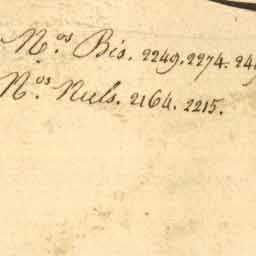 N.os Bis. 2249. 2274. 24
N.os Nuls. 2164. 2215.